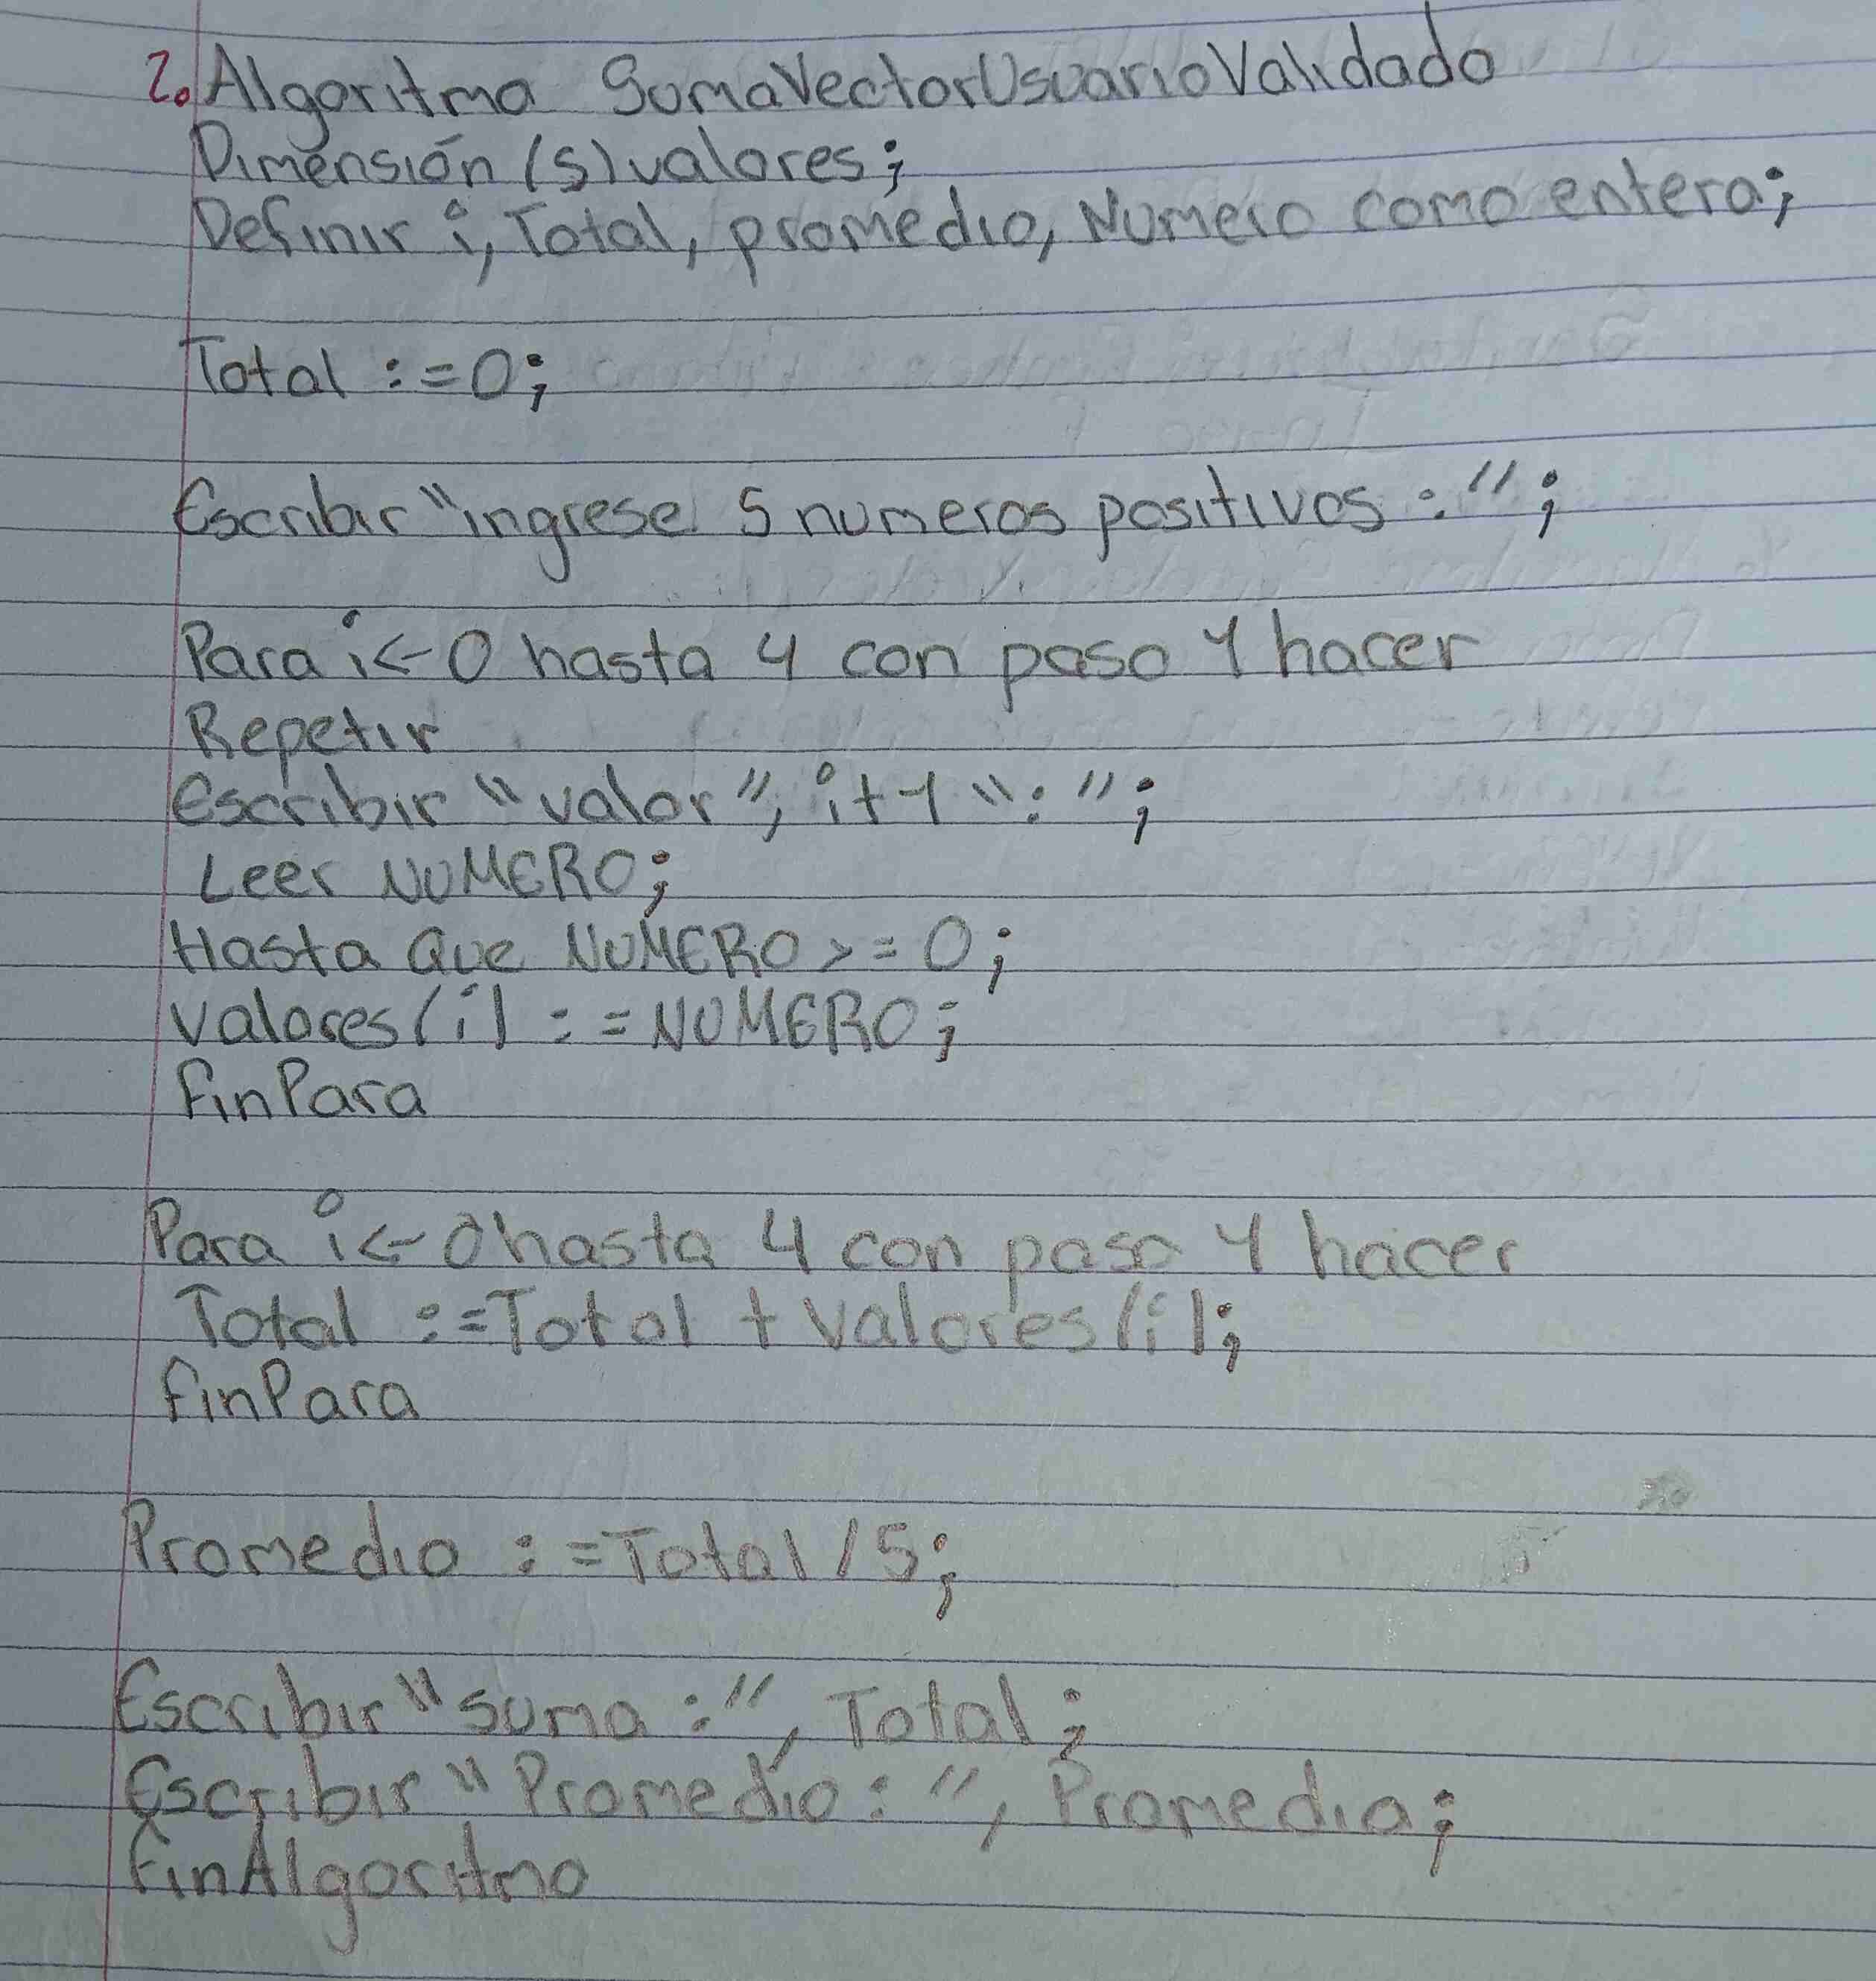 2. Algoritmo SumaVectorUsuarioValidado
Dimensión (5) valores;
Definir i, Total, promedio, Numero como entero;
Total := 0;
Escribir "ingrese 5 numeros positivos :";
Para i <- 0 hasta 4 con paso 1 hacer
Repetir
Escribir "valor", i+1 ":";
Leer NUMERO;
Hasta Que NUMERO >= 0;
valores(i) := NUMERO;
FinPara
Para i <- 0 hasta 4 con paso 1 hacer
Total := Total + valores(i);
FinPara
Promedio := Total / 5;
Escribir "suma :", Total;
Escribir "Promedio :", Promedio;
FinAlgoritmo